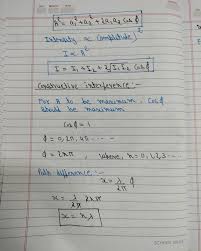 R² = a₁² + a₂² + 2a₁a₂ cos ϕ
Intensity ∝ (amplitude)²
I ∝ R²
I = I₁ + I₂ + 2√I₁I₂ cos ϕ
Constructive interference :-
For R to be maximum, cos ϕ
should be maximum
cos ϕ = 1
ϕ = 0, 2π, 4π - - -
ϕ = 2nπ, where, n = 0, 1, 2, 3 - - -
Path difference :-
x = λ/2π ϕ
x = λ/2π 2nπ
x = nλ